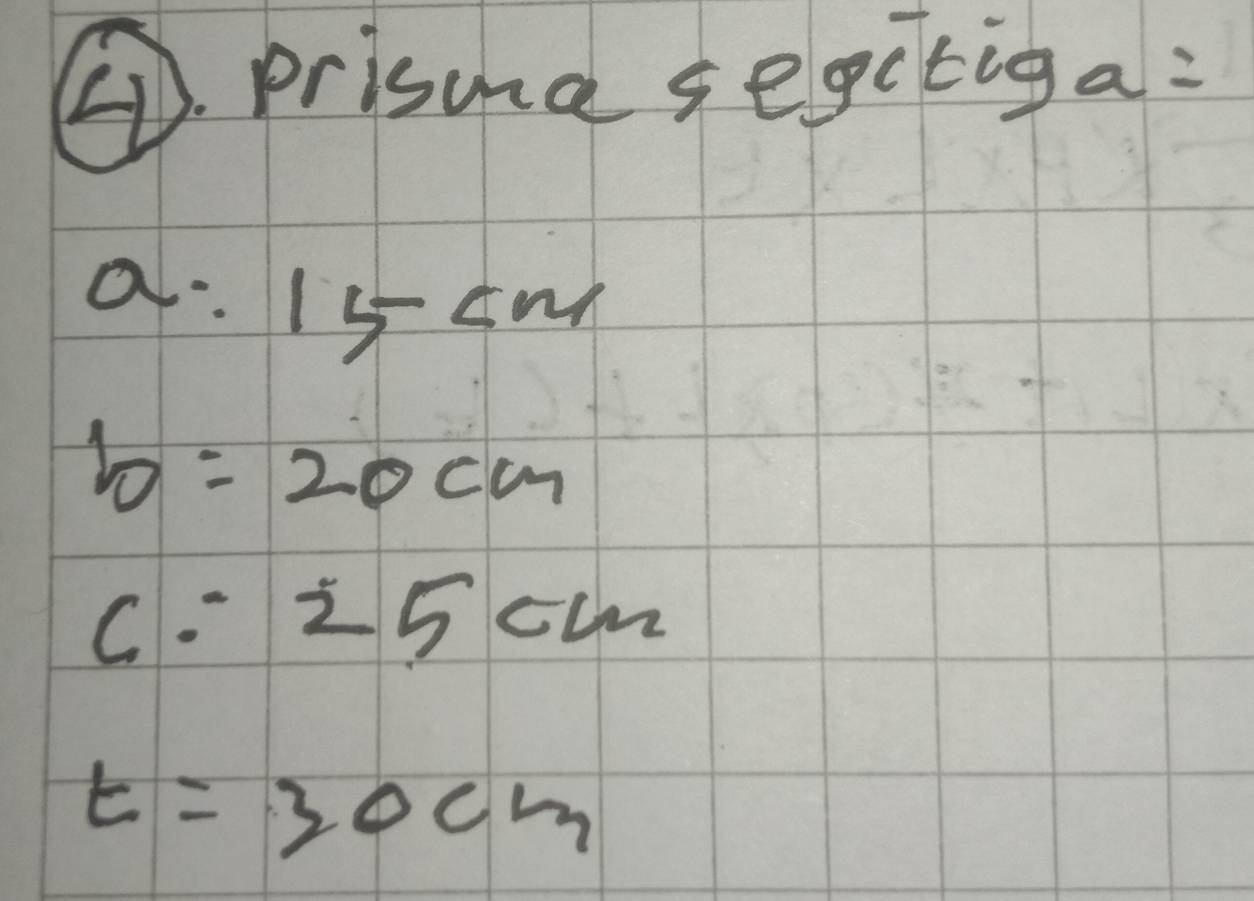 4. prisma segitiga =
a = 15 cm
b = 20 cm
c = 25 cm
t = 30 cm